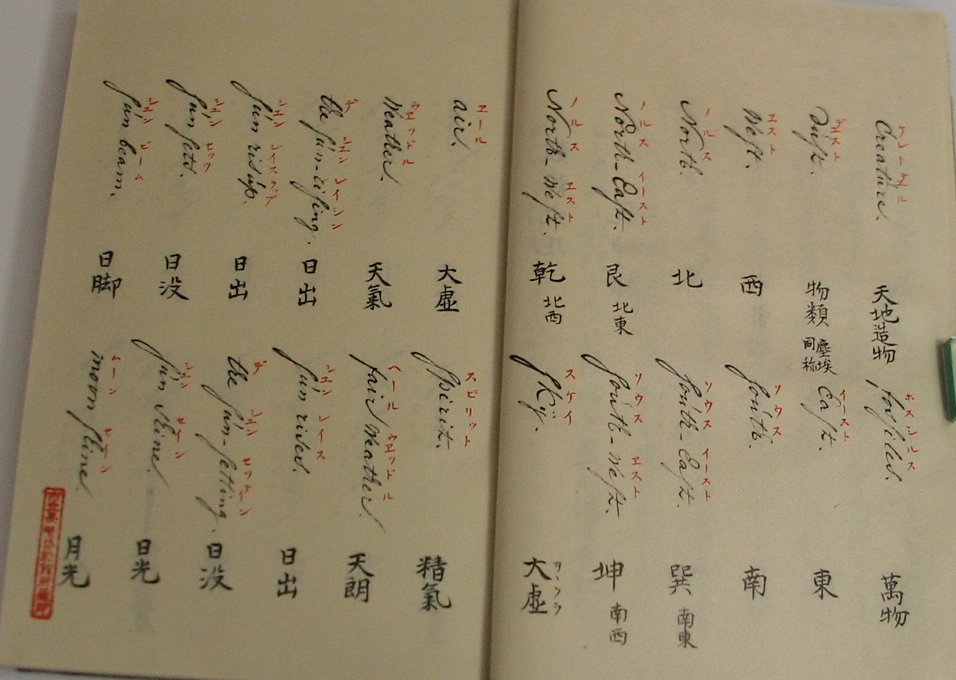 Creature.
クレーテュル
天地造物
foſsiles.
ホスシルス
萬物
Duſt.
デュスト
物類 塵埃同称
Eaſt.
イースト
東
Weſt.
エスト
西
South.
ソウス
南
North.
ノルス
北
South-Eaſt.
ソウス イースト
巽 南東
North-Eaſt.
ノルス イースト
艮 北東
South-Weſt.
ソウス エスト
坤 南西
North-Weſt.
ノルス エスト
乾 北西
Sky.
スケイ
大虚
ヲーソラ
air.
エール
大虚
Spirit.
スピリット
精氣
Weather.
ウエッテュル
天氣
fair Weather.
ヘール ウエッテュル
天朗
the ſun-riſing.
デ シュン レイシン
日出
ſun rises.
シュン レイス
日出
ſun
シュン
日出
the ſun-ſetting.
デ シュン セッティン
日没
ſun ſets.
シュン セッツ
日没
ſun shine.
シュン
日光
ſun beam.
シュン ビーム
日脚
moon ſhine.
ムーン
月光